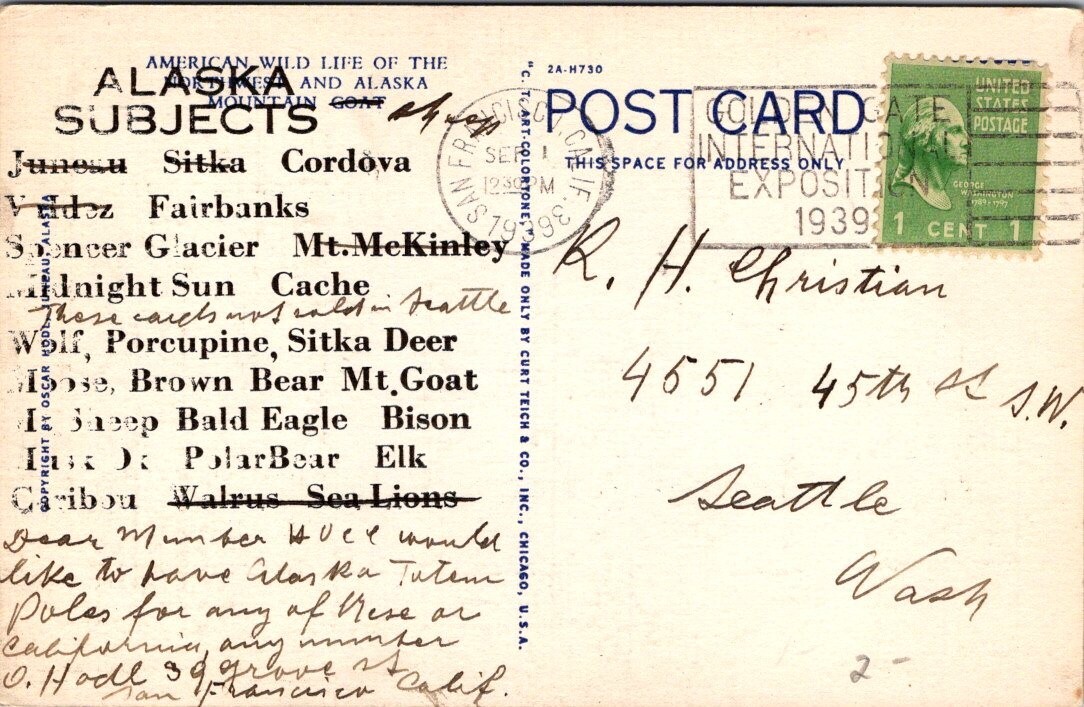 AMERICAN WILD LIFE OF THE
NORTHWEST AND ALASKA
MOUNTAIN GOAT sheep
ALASKA
SUBJECTS
Juneau Sitka Cordova
Valdez Fairbanks
Spencer Glacier Mt.McKinley
Midnight Sun Cache
These cards not sold in Seattle
Wolf, Porcupine, Sitka Deer
Moose, Brown Bear Mt.Goat
Mt Sheep Bald Eagle Bison
Musk Ox PolarBear Elk
Caribou Walrus Sea Lions
Dear Member would
like to have Alaska Totem
Poles for any of these or
California, any number
O. Hodl 39 grove St
San Francisco Calif.
COPYRIGHT BY OSCAR HODL, JUNEAU, ALASKA
"C. T. ART-COLORTONE" MADE ONLY BY CURT TEICH & CO., INC., CHICAGO, U.S.A.
2A-H730
POST CARD
THIS SPACE FOR ADDRESS ONLY
SAN FRANCISCO, CALIF.
SEP 1
1230 PM
1939
GOLDEN GATE
INTERNATIONAL
EXPOSITION
1939
UNITED
STATES
POSTAGE
GEORGE
WASHINGTON
1789-1797
1 CENT 1
R. H. Christian
4551 45th St S.W.
Seattle
Wash
2-